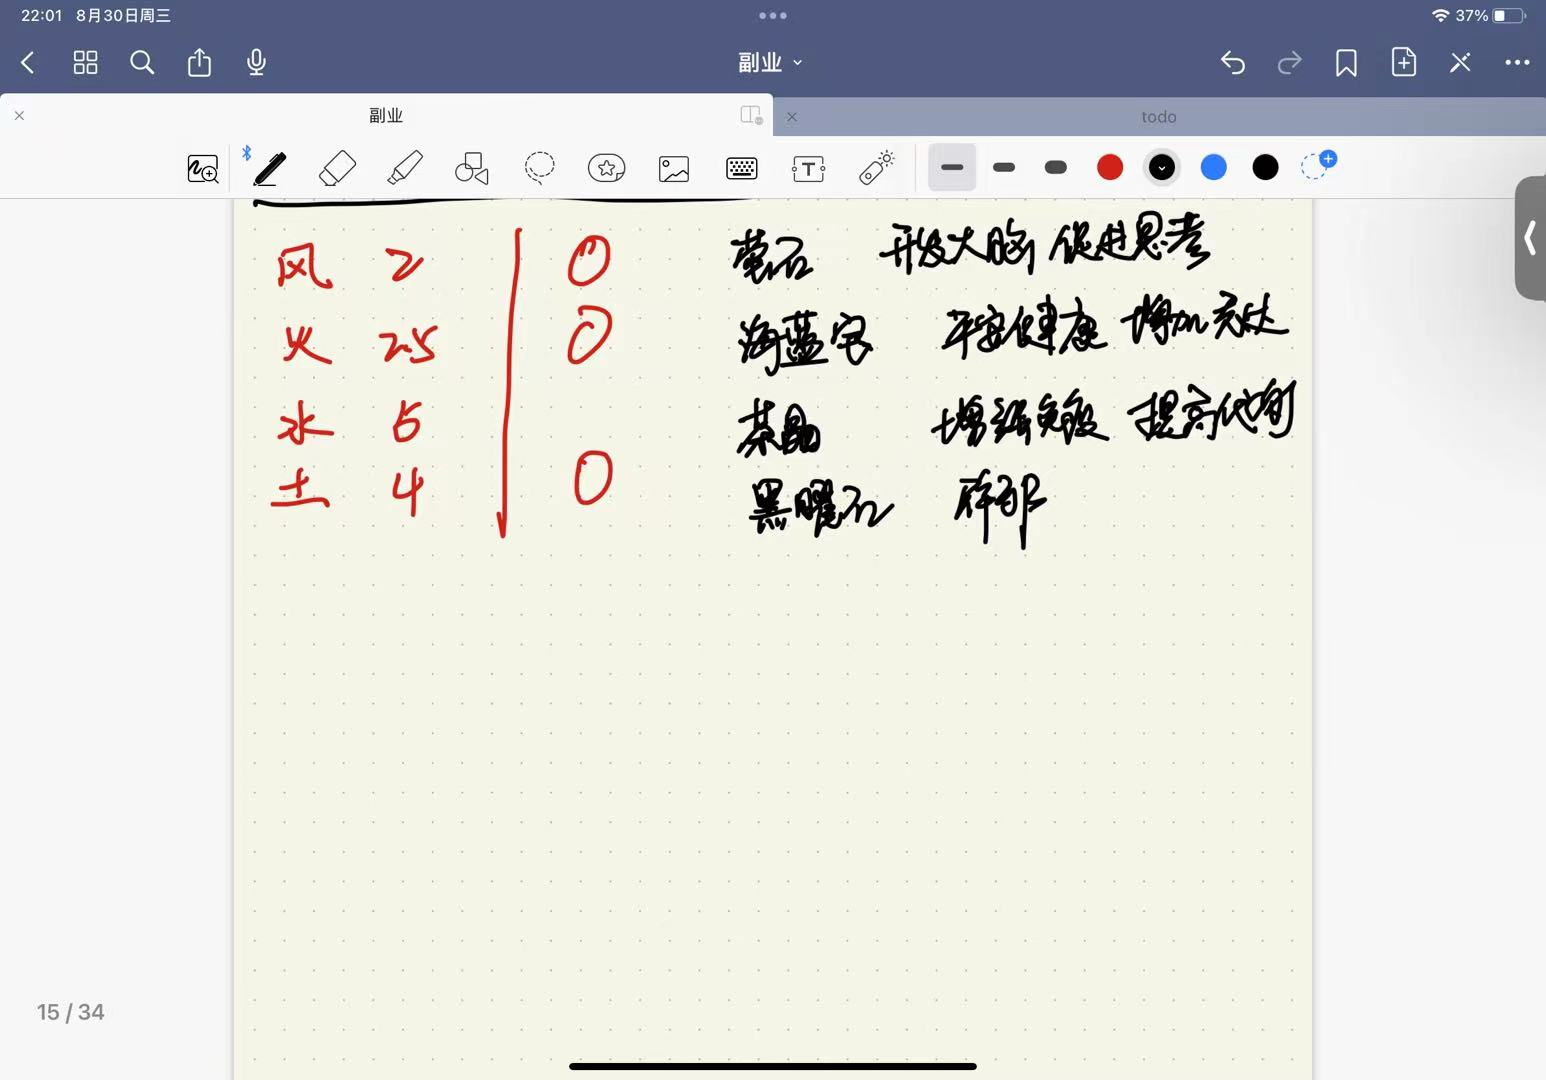 22:01 8月30日周三 37%
副业
副业 todo
风 2 0 萤石 开发大脑 促进思考
火 2.5 0 海蓝宝 平安健康 增加表达
水 5 茶晶 增强免疫 提高代谢
土 4 0 黑曜石 辟邪
15 / 34